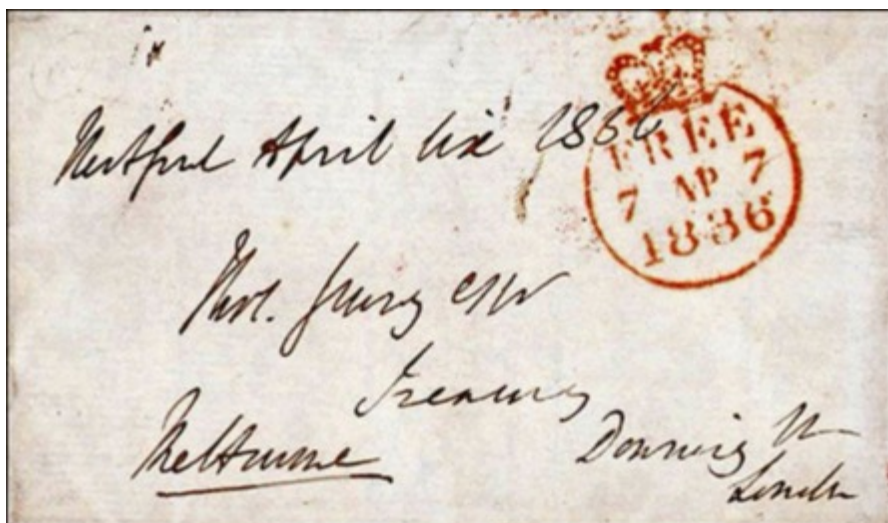 Hertford April six 1836
FREE
7 AP 7
1836
Thos. Young Esqr
Treasury
Melbourne
Downing St
London